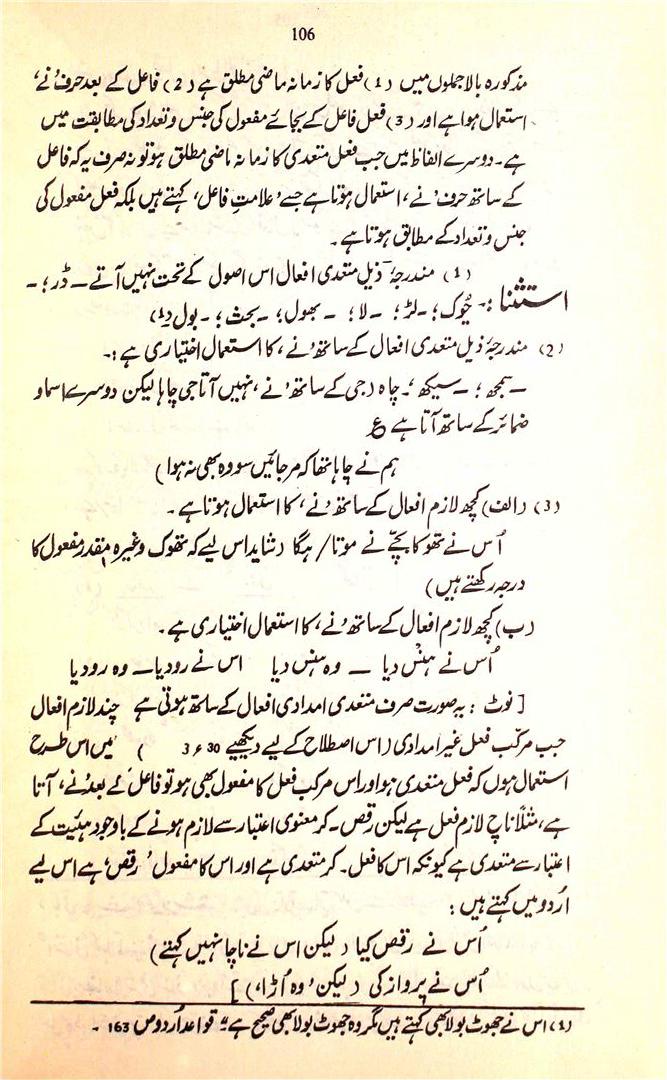 106
مذکورہ بالا جملوں میں (1) فعل کا زمانہ ماضی مطلق ہے (2) فاعل کے بعد حرف 'نے'
استعمال ہوا ہے اور (3) فعل فاعل کے بجائے مفعول کی جنس و تعداد کی مطابقت میں
ہے۔ دوسرے الفاظ میں جب فعل متعدی کا زمانہ ماضی مطلق ہو تو نہ صرف یہ کہ فاعل
کے ساتھ حرف 'نے' استعمال ہوتا ہے جسے 'علامتِ فاعل' کہتے ہیں بلکہ فعل مفعول کی
جنس و تعداد کے مطابق ہوتا ہے۔
(1) مندرجۂ ذیل متعدی افعال اس اصول کے تحت نہیں آتے ــ ڈر؛ ــ
استثنا :۔ چُوک؛ ــ لڑ؛ ــ لا؛ ــ بھول؛ ــ بحث؛ ــ بول (1)
(2) مندرجۂ ذیل متعدی افعال کے ساتھ 'نے' کا استعمال اختیاری ہے :۔
ــ سمجھ؛ ــ سیکھ؛ ــ چاہ (جی کے ساتھ 'نے' نہیں آتا جی چاہا لیکن دوسرے اسما و
ضمائر کے ساتھ آتا ہے ع
ہم نے چاہا تھا کہ مر جائیں سو وہ بھی نہ ہوا)
(3) (الف) کچھ لازم افعال کے ساتھ 'نے' کا استعمال ہوتا ہے۔
اُس نے تھوکا بچّے نے موتا / ہگا (شاید اس لیے کہ تھوک وغیرہ مقدر مفعول کا
درجہ رکھتے ہیں)
(ب) کچھ لازم افعال کے ساتھ 'نے' کا استعمال اختیاری ہے۔
اُس نے ہنس دیا ــ وہ ہنس دیا اس نے رو دیا ــ وہ رو دیا
[نوٹ : یہ صورت صرف متعدی امدادی افعال کے ساتھ ہوتی ہے چند لازم افعال
جب مرکب فعل غیر امدادی (اس اصطلاح کے لیے دیکھیے 30ء3 ) میں اس طرح
استعمال ہوں کہ فعل متعدی ہو اور اس مرکب فعل کا مفعول بھی ہو تو فاعل کے بعد 'نے' آتا
ہے، مثلاً ناچ لازم فعل ہے لیکن رقص۔ کر معنوی اعتبار سے لازم ہونے کے باوجود ہیئت کے
اعتبار سے متعدی ہے کیونکہ اس کا فعل۔ کر متعدی ہے اور اس کا مفعول 'رقص' ہے اس لیے
اُردو میں کہتے ہیں :
اُس نے رقص کیا (لیکن اس نے ناچا نہیں کہتے)
اُس نے پرواز کی (لیکن 'وہ اُڑا')]
(1) اس نے جھوٹ بولا بھی کہتے ہیں مگر وہ جھوٹ بولا بھی صحیح ہے" قواعد اُردو ص 163۔